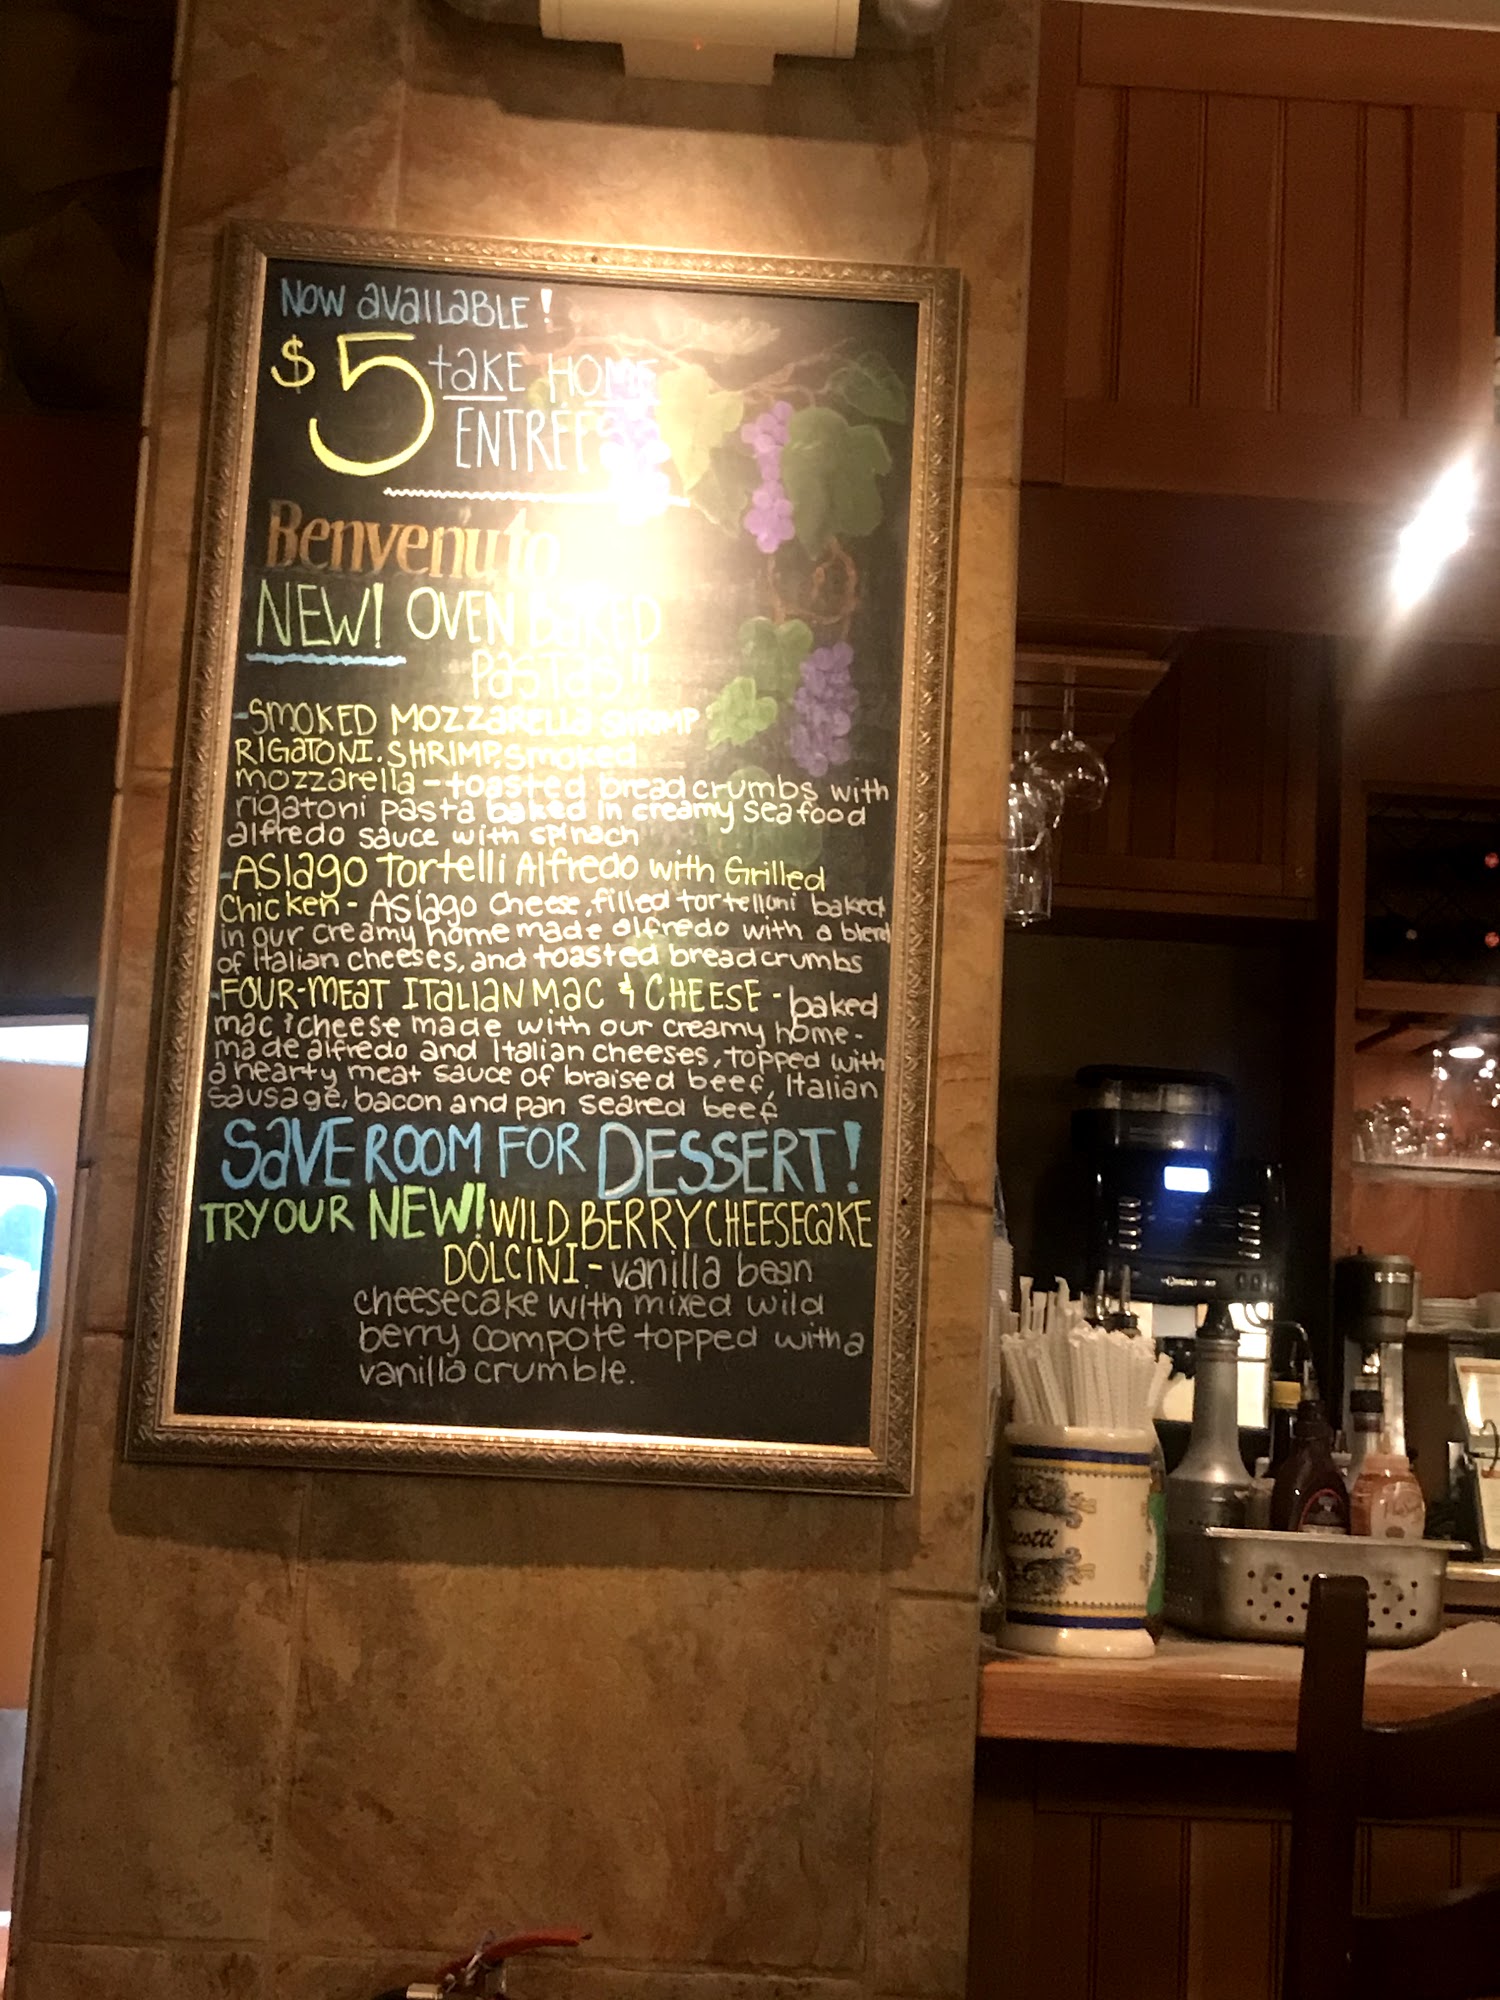 NOW avaiLaBLE!
$5 taKE HOME
ENTRÉES
Benvenuto
NEW! OVEN BaKED
PaSTaS!!
-SMOKED MOZZaRELLa SHRIMP
RIGaTONI. SHRIMP, smoked
mozzarella - toasted breadcrumbs with
rigatoni pasta baked in creamy seafood
alfredo sauce with spinach
-ASIAgo Tortelli Alfredo with Grilled
Chicken - Asiago Cheese, filled tortelloni baked
in our creamy homemade alfredo with a blend
of Italian cheeses, and toasted breadcrumbs
-FOUR-MEAT ITALIAN Mac & CHEESE - baked
mac & cheese made with our creamy home-
made alfredo and Italian cheeses, topped with
a hearty meat sauce of braised beef, Italian
sausage, bacon and pan seared beef
SaVE ROOM FOR DESSERT!
TRY OUR NEW! WILD BERRY CHEESECaKE
DOLCINI - vanilla bean
cheesecake with mixed wild
berry compote topped with a
vanilla crumble.